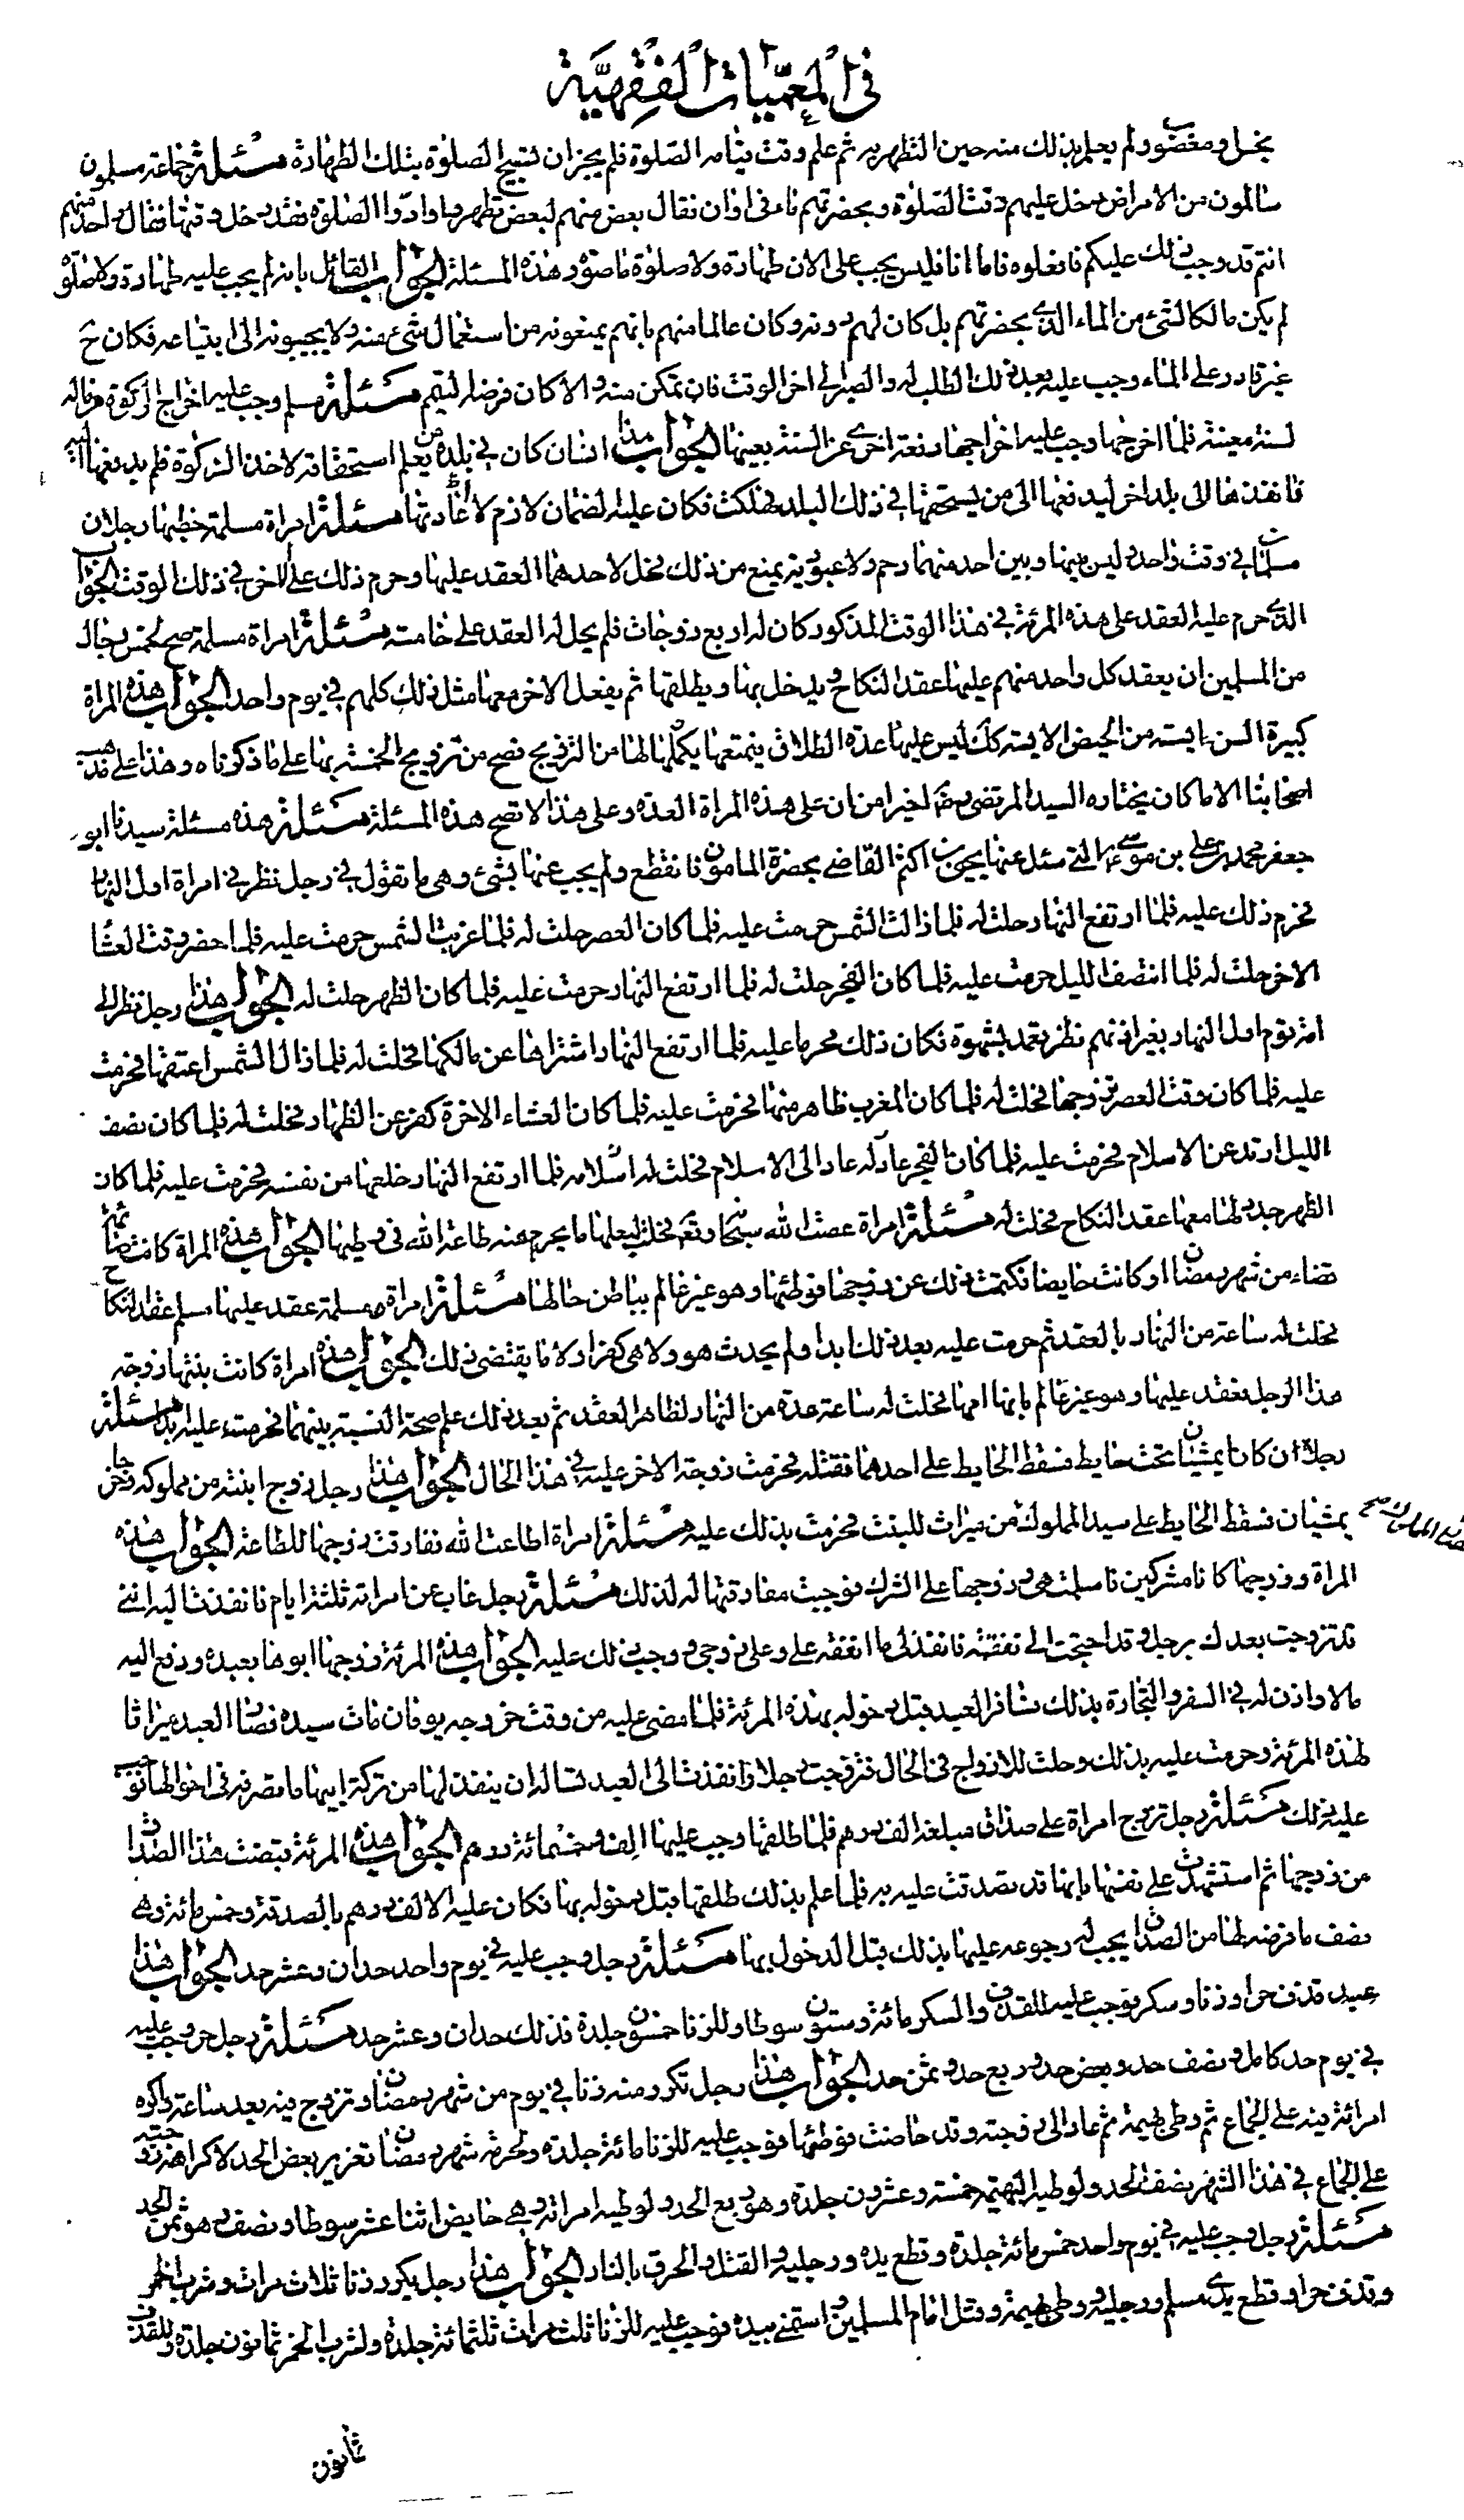 في المعميات الفقهية
بخس او مغضوب ولم يعلم بذلك منه حين التطهر به ثم علم وقت قيامه الصلوة فلم يجز ان يستبيح الصلوة بتلك الطهارة مسئلة جماعة مسلمون
سالمون من الامراض دخل عليهم وقت الصلوة وبحضرتهم ماء في اوان فقال بعض منهم لبعض تطهروا وادوا الصلوة فقد دخل وقتها فقال احد منهم
انتم قد وجب ذلك عليكم فافعلوه فاما انا فليس يجب على الان طهارة ولا صلوة ما صورة هذه المسئلة الجواب القائل بانه لم يجب عليه طهارة ولا صلوة
لم يكن مالكا لشئ من الماء الذي بحضرتهم بل كان لهم دونه وكان عالما منهم بانهم يمنعونه من استعمال شئ منه ولا يجيبونه الى ابتياعه فكان ح
غير قادر على الماء وجب عليه بعد ذلك الطلب له والصبر الى اخر الوقت فان تمكن منه والا كان فرضه التيمم مسئلة مسلم وجب عليه اخراج الزكوة من ماله
لسنة معينة فلما اخرجها وجب عليه اخراجها دفعة اخرى عن السنة بعينها الجواب هذا انسان كان في بلده من يعلم استحقاقه لاخذ الزكوة فلم يدفعها اليه
فانفذها الى بلد اخر ليدفعها الى من يستحقها في ذلك البلد فهلكت فكان عليه الضمان لازم لاعادتها مسئلة امراة مسلمة خطبها رجلان
مسلمان في وقت واحد ليس بينها وبين احد منهما رحم ولا عبودية يمنع من ذلك فحل لاحدهما العقد عليها وحرم ذلك على الاخر في ذلك الوقت الجواب
الذي حرم عليه العقد على هذه المرئة في هذا الوقت المذكور كان له اربع زوجات فلم يحل له العقد على خامسة مسئلة امراة مسلمة صح لخمس رجال
من المسلمين ان يعقد كل واحد منهم عليها عقد النكاح ويدخل بها ويطلقها ثم يفعل الاخر معها مثل ذلك كلهم في يوم واحد الجواب هذه المراة
كبيرة السن ايسه من الحيض الايسه كك ليس عليها عدة الطلاق يمنعها يكملها لها من التزويج فصح من تزويج الخمسة بها على ما ذكرناه وهذا على مذهب
اصحابنا الا ما كان يختاره السيد المرتضى رضه اخيرا من ان على هذه المراة العدة وعلى هذا لا تصح هذه المسئلة مسئلة هذه مسئلة سيدنا ابو
جعفر محمد بن علي بن موسى ع التي سئل عنها يحيى بن اكثم القاضي بحضرة المامون فانقطع ولم يجب عنها بشئ وهي ما تقول في رجل نظر في امراة اول النهار
فحرم ذلك عليه فلما ارتفع النهار حلت له فلما زالت الشمس حرمت عليه فلما كان العصر حلت له فلما غربت الشمس حرمت عليه فلما حضر وقت العشا
الاخر حلت له فلما انتصف الليل حرمت عليه فلما كان الفجر حلت له فلما ارتفع النهار حرمت عليه فلما كان الظهر حلت له الجواب هذا رجل نظر الى
امة قوم اول النهار بغير اذنهم نظر بعمد بشهوة فكان ذلك محرما عليه فلما ارتفع النهار اشتراها عن مالكها فحلت له فلما زال الشمس اعتقها فحرمت
عليه فلما كان وقت العصر تزوجها فحلت له فلما كان المغرب ظاهر منها فحرمت عليه فلما كان العشاء الاخرة كفر عن الظهار فحلت له فلما كان نصف
الليل ارتد عن الاسلام فحرمت عليه فلما كان الفجر عاد له عاد الى الاسلام فحلت له اسلامه فلما ارتفع النهار خلعها من نفسه فحرمت عليه فلما كان
الظهر جدد لها معها عقد النكاح فحلت له مسئلة امراة عصت الله سبحانه وتع فحلت لبعلها ما يحرم منه طاعة الله في وطيها الجواب هذه المراة كانت صائمة
قضاء من شهر رمضان او كانت حايضا فكتمت ذلك عن زوجها فوطئها وهو غير عالم بباطن حالها مسئلة امراة مسلمة عقد عليها مسلم عقد النكاح
فحلت له ساعة من النهار بالعقد ثم حرمت عليه بعد ذلك ابدا ولم يحدث هو ولا هي كفرا ولا ما يقتضي ذلك الجواب هذه امراة كانت بنتها زوجة
هذا الرجل فعقد عليها وهو غير عالم بانها امها فحلت له ساعة عدة من النهار لظاهر العقد ثم بعد ذلك علم صحة النسبة بينهما فحرمت عليه ابدا مسئلة
رجلان كانا يمشيان تحت حايط فسقط الحايط على احدهما فقتله فحرمت زوجة الاخر عليه في هذا الحال الجواب هذا رجل زوج ابنته من مملوكه وخرجا
يمشيان فسقط الحايط على سيد المملوك من ميراث للبنت فحرمت بذلك عليه مسئلة امراة اطاعت الله ففارقت زوجها للطاعة الجواب هذه
المراة وزوجها كانا مشركين فاسلمت هي وزوجها على الشرك فوجبت مفارقتها له لذلك مسئلة رجل غاب عن امراته ثلثة ايام فانفذت اليه انني
قد تزوجت بعدك برجل وقد احتجت الى نفقة فانفذ لي ما انفقه علي وعلى زوجي ووجب ذلك عليه الجواب هذه المرئة زوجها ابوها بعبده ودفع اليه
مالا واذن له في السفر والتجارة بذلك فسافر العبد قبل دخوله بهذه المرئة فلما مضى عليه من وقت خروجه يومان مات سيده فصار العبد ميراثا
لهذه المرئة وحرمت عليه بذلك وحلت للازواج في الحال فتزوجت رجلا وانفذت الى العبد تساله ان ينفذ لها من تركة ابيها ما تصرفه في احوالها فوجب
عليه ذلك مسئلة رجل تزوج امراة على صداق مبلغه الف درهم فلما طلقها وجب عليها الف وخمسمائة درهم الجواب هذه المرئة قبضت هذا الصداق
من زوجها ثم استشهدت على نفسها بانها قد تصدقت عليه به فلما علم بذلك طلقها قبل دخوله بها فكان عليه الالف درهم بالصدقة وخمس مائة وهي
نصف ما فرضه لها من الصداق يجب له رجوعه عليها بذلك قبل الدخول بها مسئلة رجل وجب عليه في يوم واحد حدان وعشر حد الجواب هذا
عبد قذف حرا وزنا وسكر فوجب عليه للقذف والسكر مائة وستون سوطا وللزنا خمسون جلدة فذلك حدان وعشر حد مسئلة رجل حر وجب عليه
في يوم حد كامل ونصف حد وبعض حد وربع حد وثمن حد الجواب هذا رجل تكرر منه زنا في يوم من شهر رمضان وتزوج فيه بعد ساعة واكره
امراته فيه على الجماع ثم وطى بهيمة ثم عاد الى زوجته وقد حاضت فوطئها فوجب عليه للزنا مائة جلدة ولحرمة شهر رمضان تعزير بعض الحد لاكراهه زوجته
على الجماع في هذا الشهر نصف الحد ولوطيه البهيمة خمسة وعشرون جلدة وهو ربع الحد ولوطيه امراته وهي حايض اثنا عشر سوطا ونصف وهو ثمن الحد
مسئلة رجل وجب عليه في يوم واحد خمس مائة جلدة وقطع يده ورجليه والقتل والحرق بالنار الجواب هذا رجل بكر زنا ثلاث مرات وشرب الخمر
وقذف حرا وقطع يدي مسلم ورجليه ووطى بهيمة وقتل امام المسلمين واستمنى بيده فوجب عليه للزنا ثلث مرات ثلثمائة جلدة ولشرب الخمر ثمانون جلدة وللقذف
ثمانون